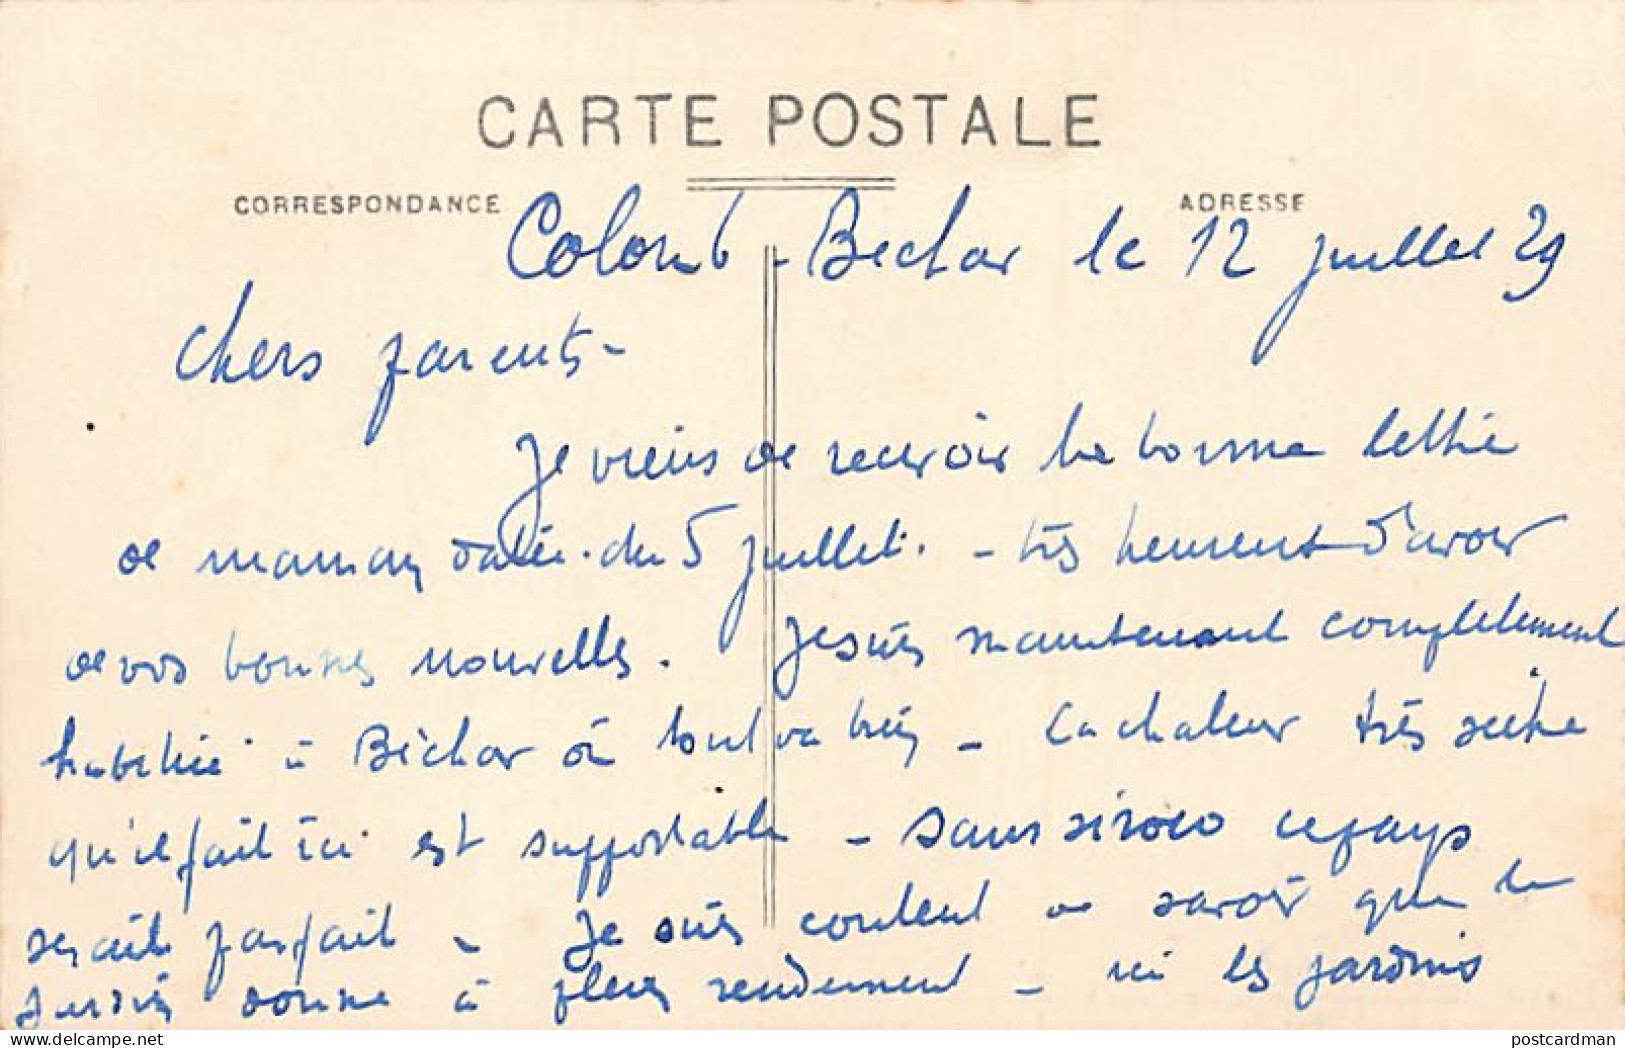 CARTE POSTALE
CORRESPONDANCE
ADRESSE
Colomb-Bechar le 12 juillet 29
Chers parents -
Je viens de recevoir la bonne lettre
de maman datée du 5 juillet. - très heureux d'avoir
de vos bonnes nouvelles. Je suis maintenant complètement
habitué à Béchar où tout va bien - La chaleur très sèche
qu'il fait ici est supportable - sans siroco ce pays
serait parfait - Je suis content de savoir que le
jardin donne à plein rendement - ici les jardins
postcardman